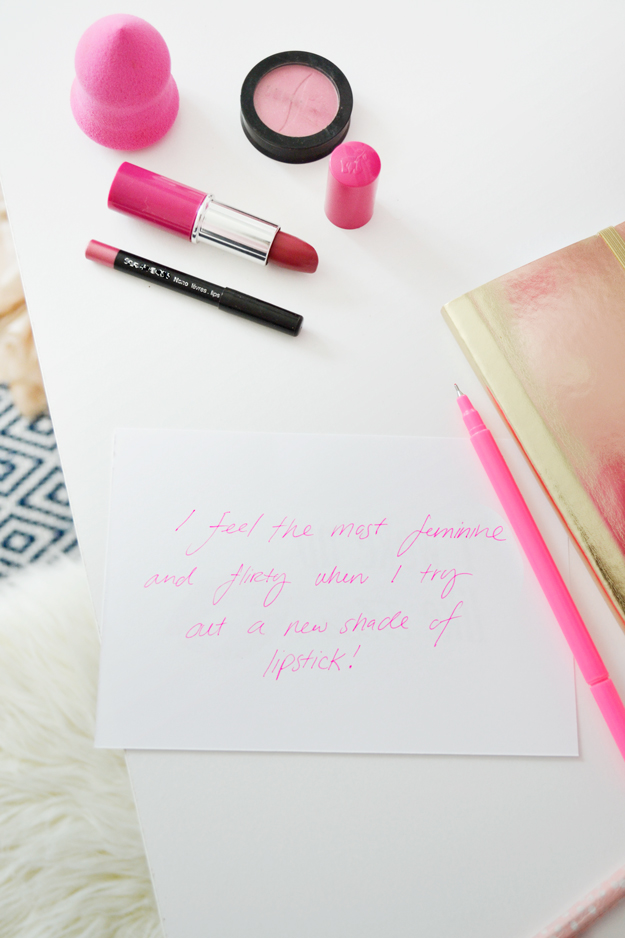 Nano lèvres . lips
I feel the most feminine
and flirty when I try
out a new shade of
lipstick!